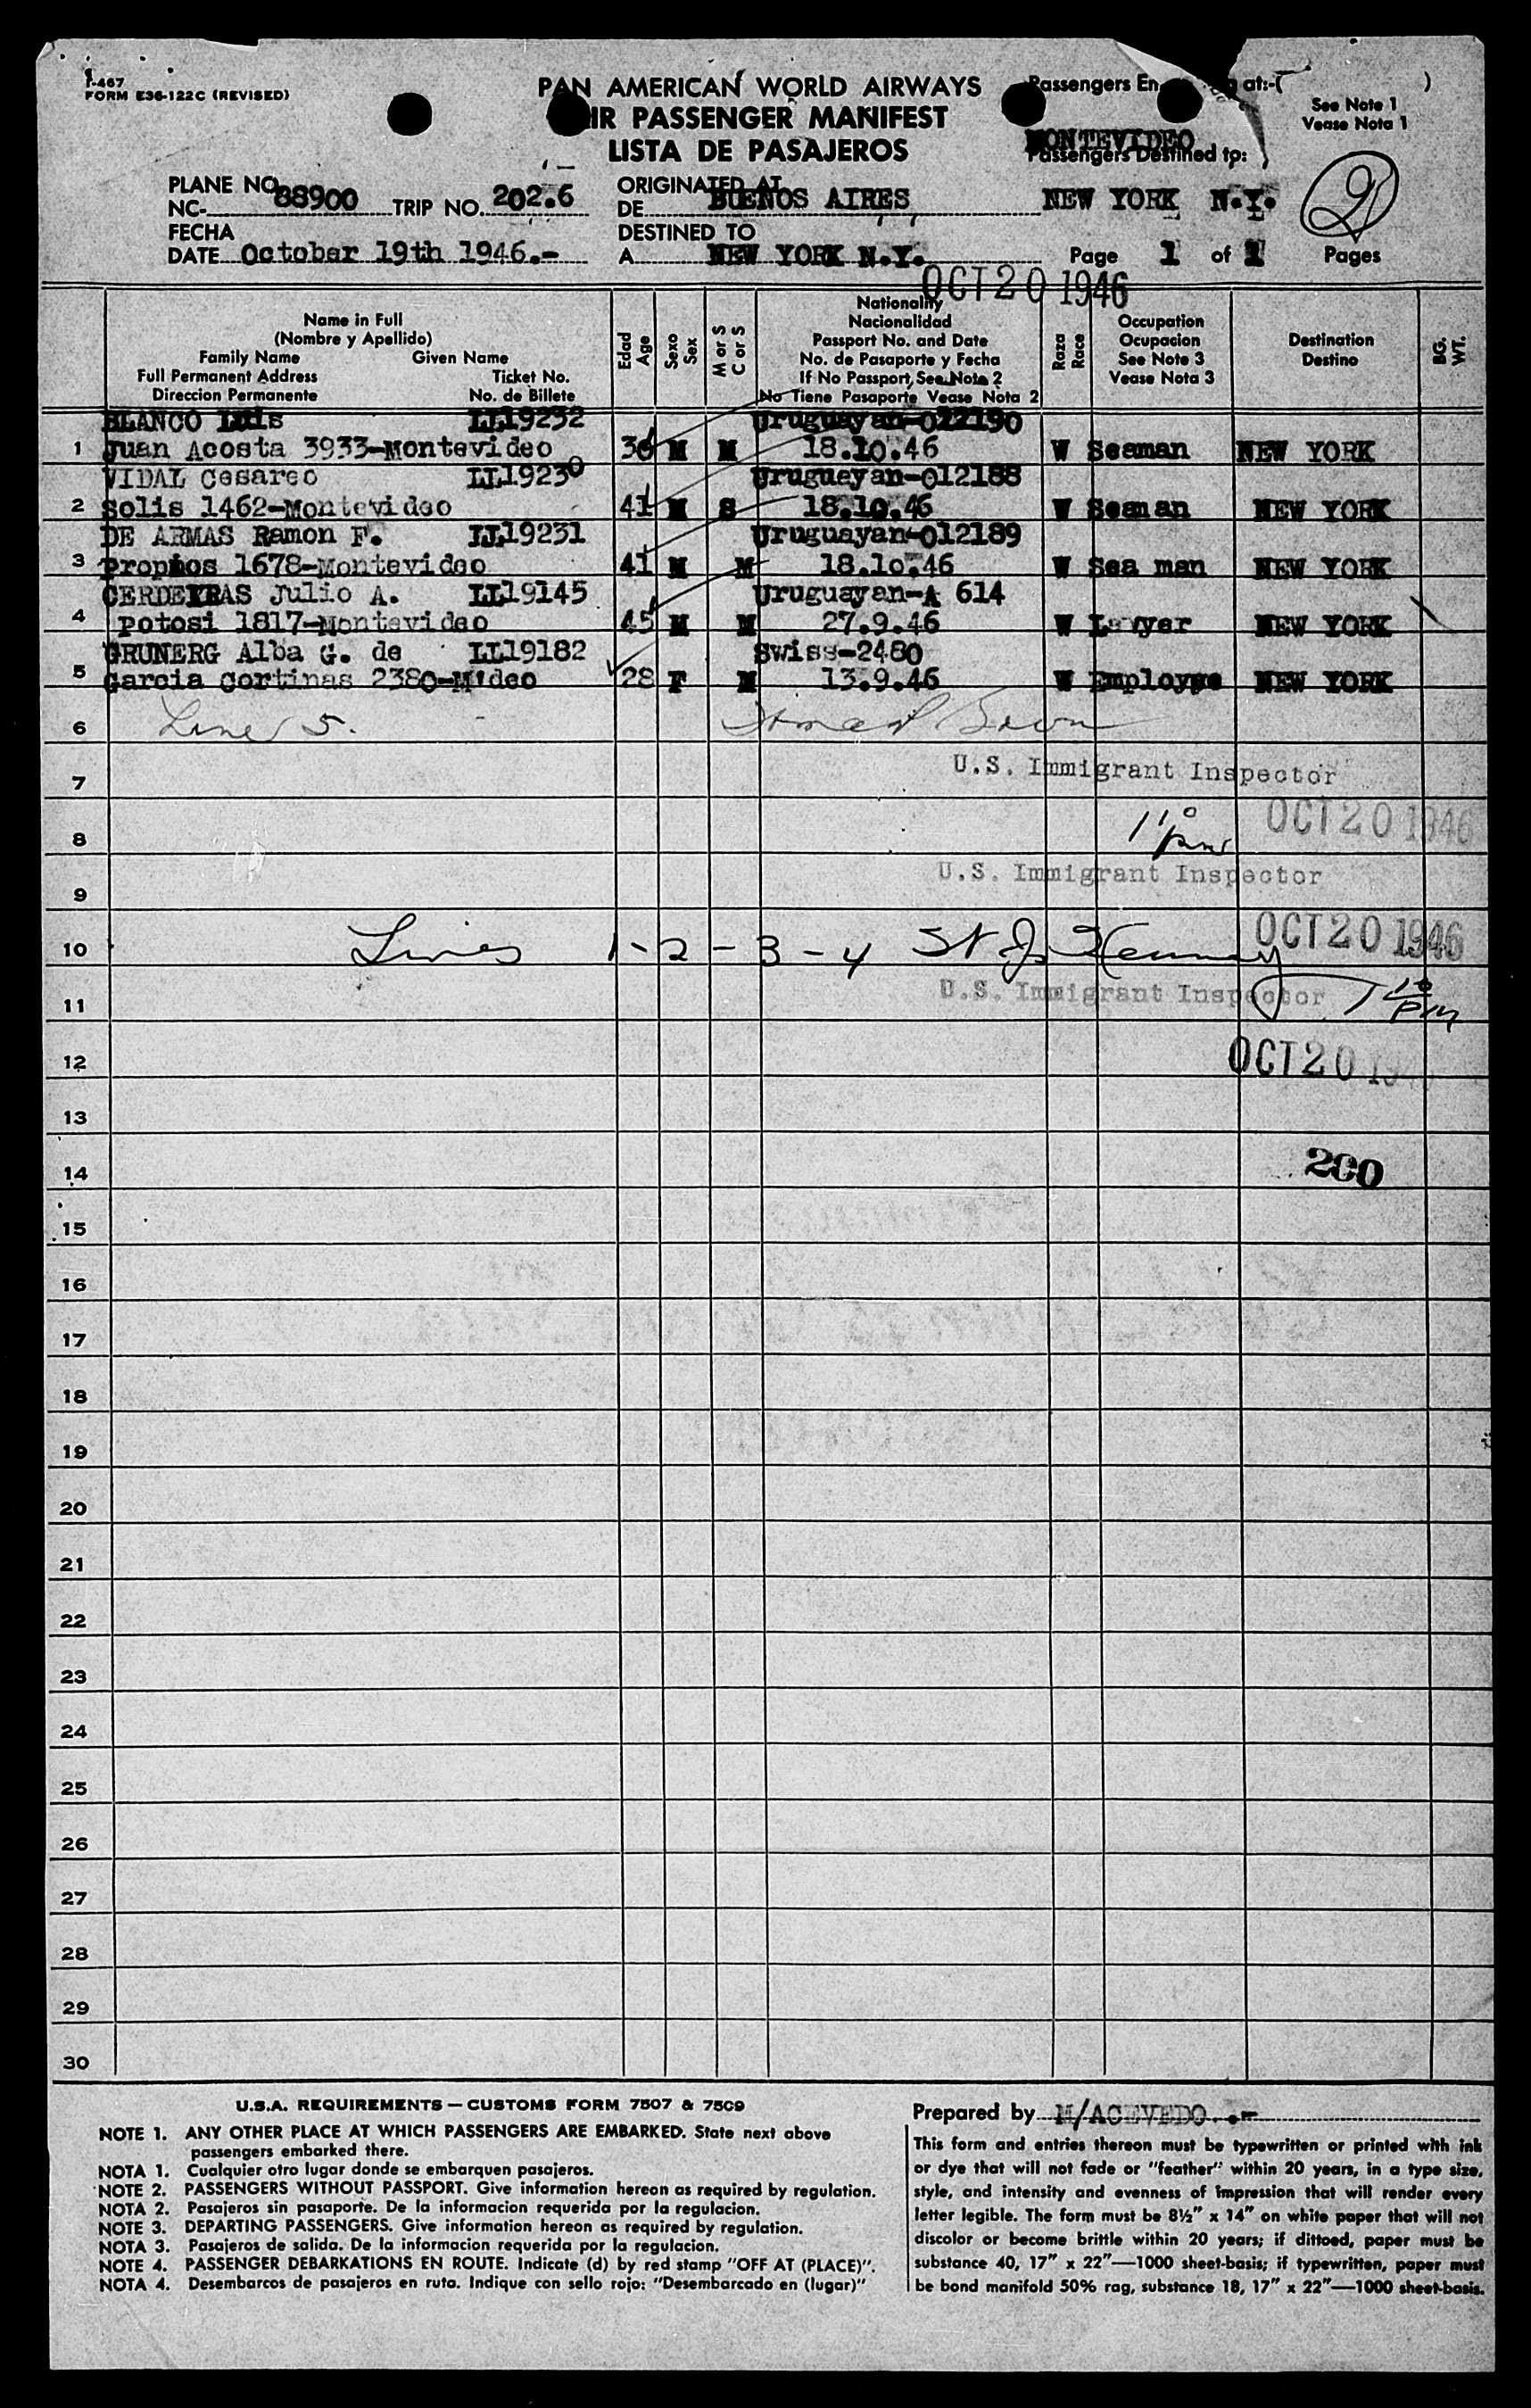 I-467
FORM E36-122C (REVISED)
PAN AMERICAN WORLD AIRWAYS
IR PASSENGER MANIFEST
LISTA DE PASAJEROS
Passengers En at:-( )
See Note 1
Vease Nota 1
MONTEVIDEO
Passengers Destined to:
PLANE NO.
NC- 88900 TRIP NO. 202.6
ORIGINATED AT
DE BUENOS AIRES
NEW YORK N.Y.
2
FECHA
DATE October 19th 1946.-
DESTINED TO
A NEW YORK N.Y.
Page 1 of 1 Pages
OCT 20 1946
Name in Full
(Nombre y Apellido)
Family Name Given Name
Full Permanent Address Ticket No.
Direccion Permanente No. de Billete
Edad
Age
Sexo
Sex
M or S
C or S
Nationality
Nacionalidad
Passport No. and Date
No. de Pasaporte y Fecha
If No Passport, See Note 2
No Tiene Pasaporte Vease Nota 2
Raza
Race
Occupation
Ocupacion
See Note 3
Vease Nota 3
Destination
Destino
BG.
WT.
BLANCO Luis LL19232 Uruguayan-022190
1 Juan Acosta 3933-Montevideo 36 M M 18.10.46 W Seaman NEW YORK
VIDAL Cesareo LL19230 Uruguayan-012188
2 Solis 1462-Montevideo 41 M S 18.10.46 W Seaman NEW YORK
DE ARMAS Ramon F. LL19231 Uruguayan-012189
3 Propios 1678-Montevideo 41 M M 18.10.46 W Sea man NEW YORK
CERDEYRAS Julio A. LL19145 Uruguayan-A 614
4 Potosi 1817-Montevideo 45 M M 27.9.46 W Lawyer NEW YORK
GRUNERG Alba G. de LL19182 Swiss-2480
5 Garcia Cortinas 2380-M'deo 28 F M 13.9.46 W Employee NEW YORK
6 Line 5.
U.S. Immigrant Inspector
7
OCT 20 1946
8 1 10 pm
U.S. Immigrant Inspector
9
OCT 20 1946
10 Lines 1-2-3-4
U.S. Immigrant Inspector
11 1 10 PM
12 OCT 20 19
13
14 200
15
16
17
18
19
20
21
22
23
24
25
26
27
28
29
30
U.S.A. REQUIREMENTS — CUSTOMS FORM 7507 & 7509
NOTE 1. ANY OTHER PLACE AT WHICH PASSENGERS ARE EMBARKED. State next above
passengers embarked there.
NOTA 1. Cualquier otro lugar donde se embarquen pasajeros.
NOTE 2. PASSENGERS WITHOUT PASSPORT. Give information hereon as required by regulation.
NOTA 2. Pasajeros sin pasaporte. De la informacion requerida por la regulacion.
NOTE 3. DEPARTING PASSENGERS. Give information hereon as required by regulation.
NOTA 3. Pasajeros de salida. De la informacion requerida por la regulacion.
NOTE 4. PASSENGER DEBARKATIONS EN ROUTE. Indicate (d) by red stamp "OFF AT (PLACE)".
NOTA 4. Desembarcos de pasajeros en ruta. Indique con sello rojo: "Desembarcado en (lugar)"
Prepared by M/ACEVEDO.-
This form and entries thereon must be typewritten or printed with ink
or dye that will not fade or "feather" within 20 years, in a type size,
style, and intensity and evenness of impression that will render every
letter legible. The form must be 8½" x 14" on white paper that will not
discolor or become brittle within 20 years; if dittoed, paper must be
substance 40, 17" x 22"—1000 sheet-basis; if typewritten, paper must
be bond manifold 50% rag, substance 18, 17" x 22"—1000 sheet-basis.